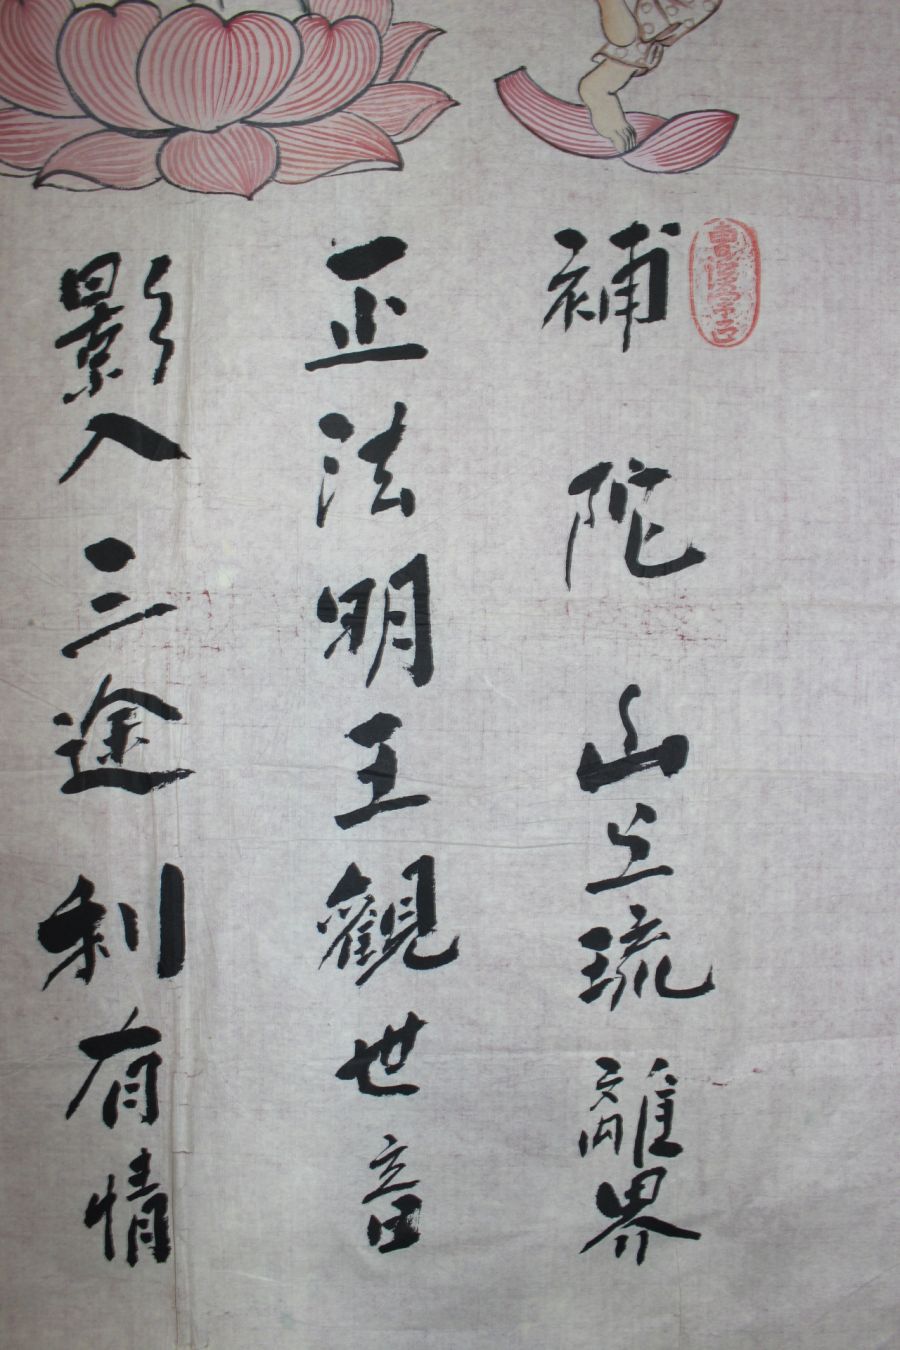 補陀山上琉離界
正法明王觀世音
影入三途利有情